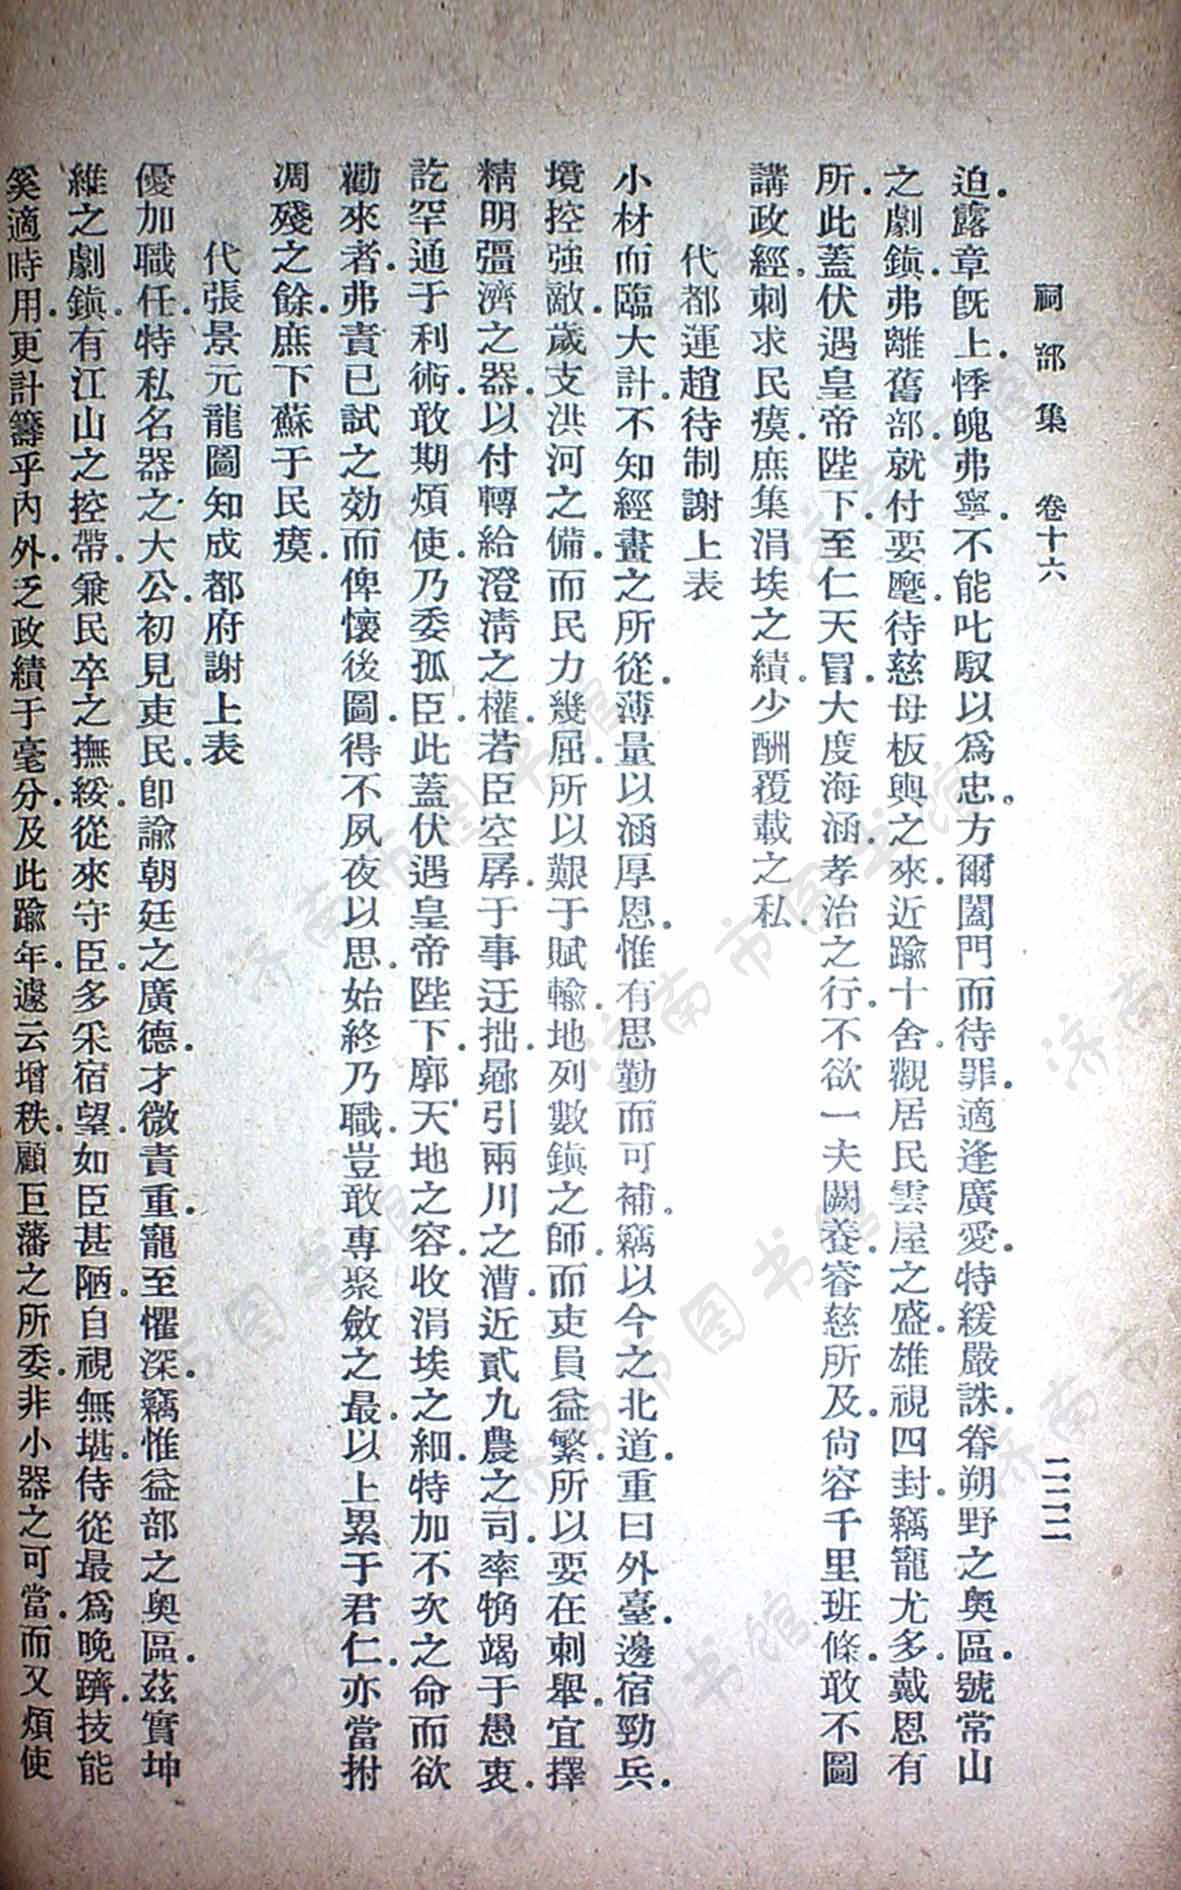 祠部集　卷十六　二三二
迫。露章旣上。悸魄弗寧。不能叱馭以爲忠。方爾闔門而待罪。適逢廣愛。特緩嚴誅。眷朔野之奧區。號常山
之劇鎭。弗離舊部。就付要麾。待慈母板輿之來。近踰十舍。觀居民雲屋之盛。雄視四封。竊寵尤多。戴恩有
所。此蓋伏遇皇帝陛下。至仁天冒。大度海涵。孝治之行。不欲一夫闕養。睿慈所及。尙容千里班條。敢不圖
講政經。刺求民瘼。庶集涓埃之績。少酬覆載之私。
代都運趙待制謝上表
小材而臨大計。不知經畫之所從。薄量以涵厚恩。惟有思勤而可補。竊以今之北道。重曰外臺。邊宿勁兵。
境控強敵。歲支洪河之備。而民力幾屈。所以艱于賦輸。地列數鎭之師。而吏員益繁。所以要在刺舉。宜擇
精明彊濟之器。以付轉給澄淸之權。若臣空孱于事。迂拙。曏引兩川之漕。近貳九農之司。率犄竭于愚衷。
訖罕通于利術。敢期煩使。乃委孤臣。此蓋伏遇皇帝陛下。廓天地之容。收涓埃之細。特加不次之命。而欲
勸來者。弗責已試之効。而俾懷後圖。得不夙夜以思。始終乃職。豈敢專聚斂之最。以上累于君仁。亦當拊
凋殘之餘。庶下蘇于民瘼。
代張景元龍圖知成都府謝上表
優加職任。特私名器之大公。初見吏民。卽諭朝廷之廣德。才微責重。寵至懼深。竊惟益部之奧區。茲實坤
維之劇鎭。有江山之控帶。兼民卒之撫綏。從來守臣。多采宿望。如臣甚陋。自視無堪。侍從最爲晚躋。技能
奚適時用。更計籌乎內外。乏政績于毫分。及此踰年。遽云增秩。顧巨藩之所委。非小器之可當。而又煩使